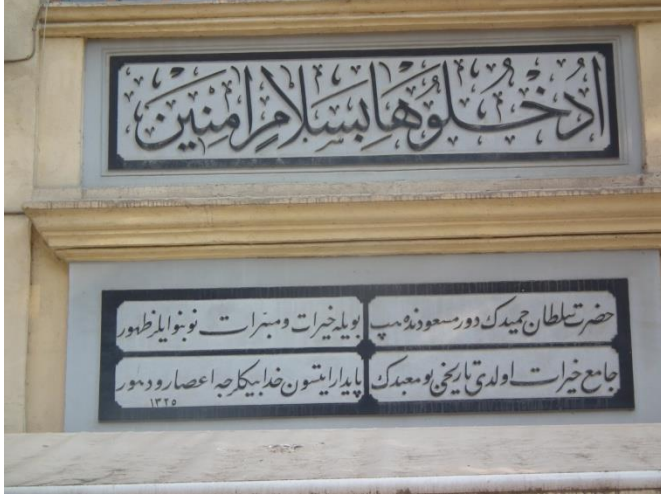 اُدْخُلُوهَا بِسَلَامٍ اٰمِنِينَ
حضرت سلطان حميدك دور مسعودنده هپ بويله خيرات ومبرات نوبنو ايلر ظهور
جامع خيرات اولدى تاريخى بو معبدك پايدار ايتسون خدا بيكلرجه اعصار ودهور
١٣٢٥